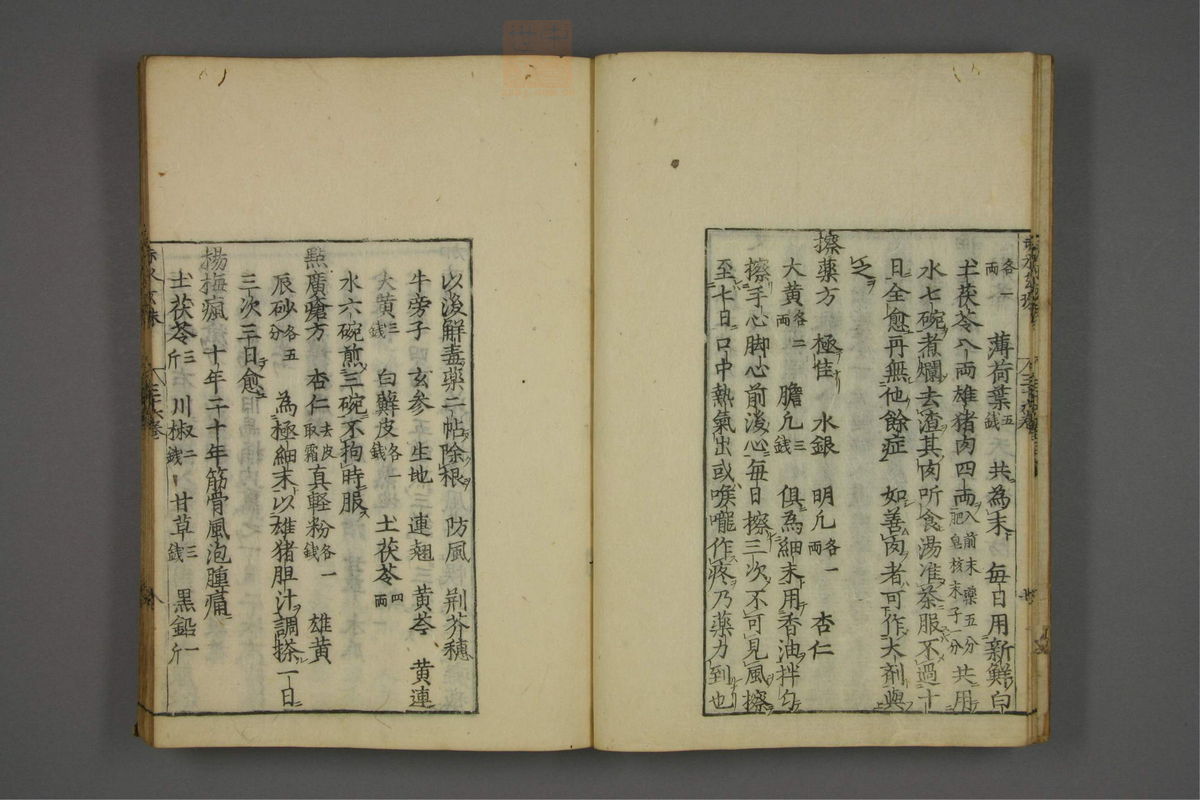 各一両　薄荷葉五銭　共為末　毎日用新鮮白
土茯苓八両雄猪肉四両入前末薬五分肥皂核末子一分共用
水七碗煮爛去渣其肉听食湯准茶服不過十
日全愈再無他餘症　如善肉者可作大剤與
之
擦薬方　極佳　水銀　明凢各一両　杏仁
大黄各二両　膽凢三銭　俱為細末用香油拌匀
擦手心脚心前後心毎日擦三次不可見風擦
至七日口中熱氣出或喉嚨作疼乃薬力到也
以後解毒薬二帖除根　防風　荊芥穂
牛旁子　玄参　生地　連翹　黄芩　黄連
大黄三銭　白蘚皮各一銭　土茯苓四両
水六碗煎三碗不拘時服
點廣瘡方　杏仁去皮取霜　真軽粉各一分銭　雄黄
辰砂各五分　為極細末以雄猪胆汁調搽一日
三次三日愈
楊梅瘋　十年二十年筋骨風泡腫痛
土茯苓三斤　川椒二銭　甘草三銭　黒鉛一斤